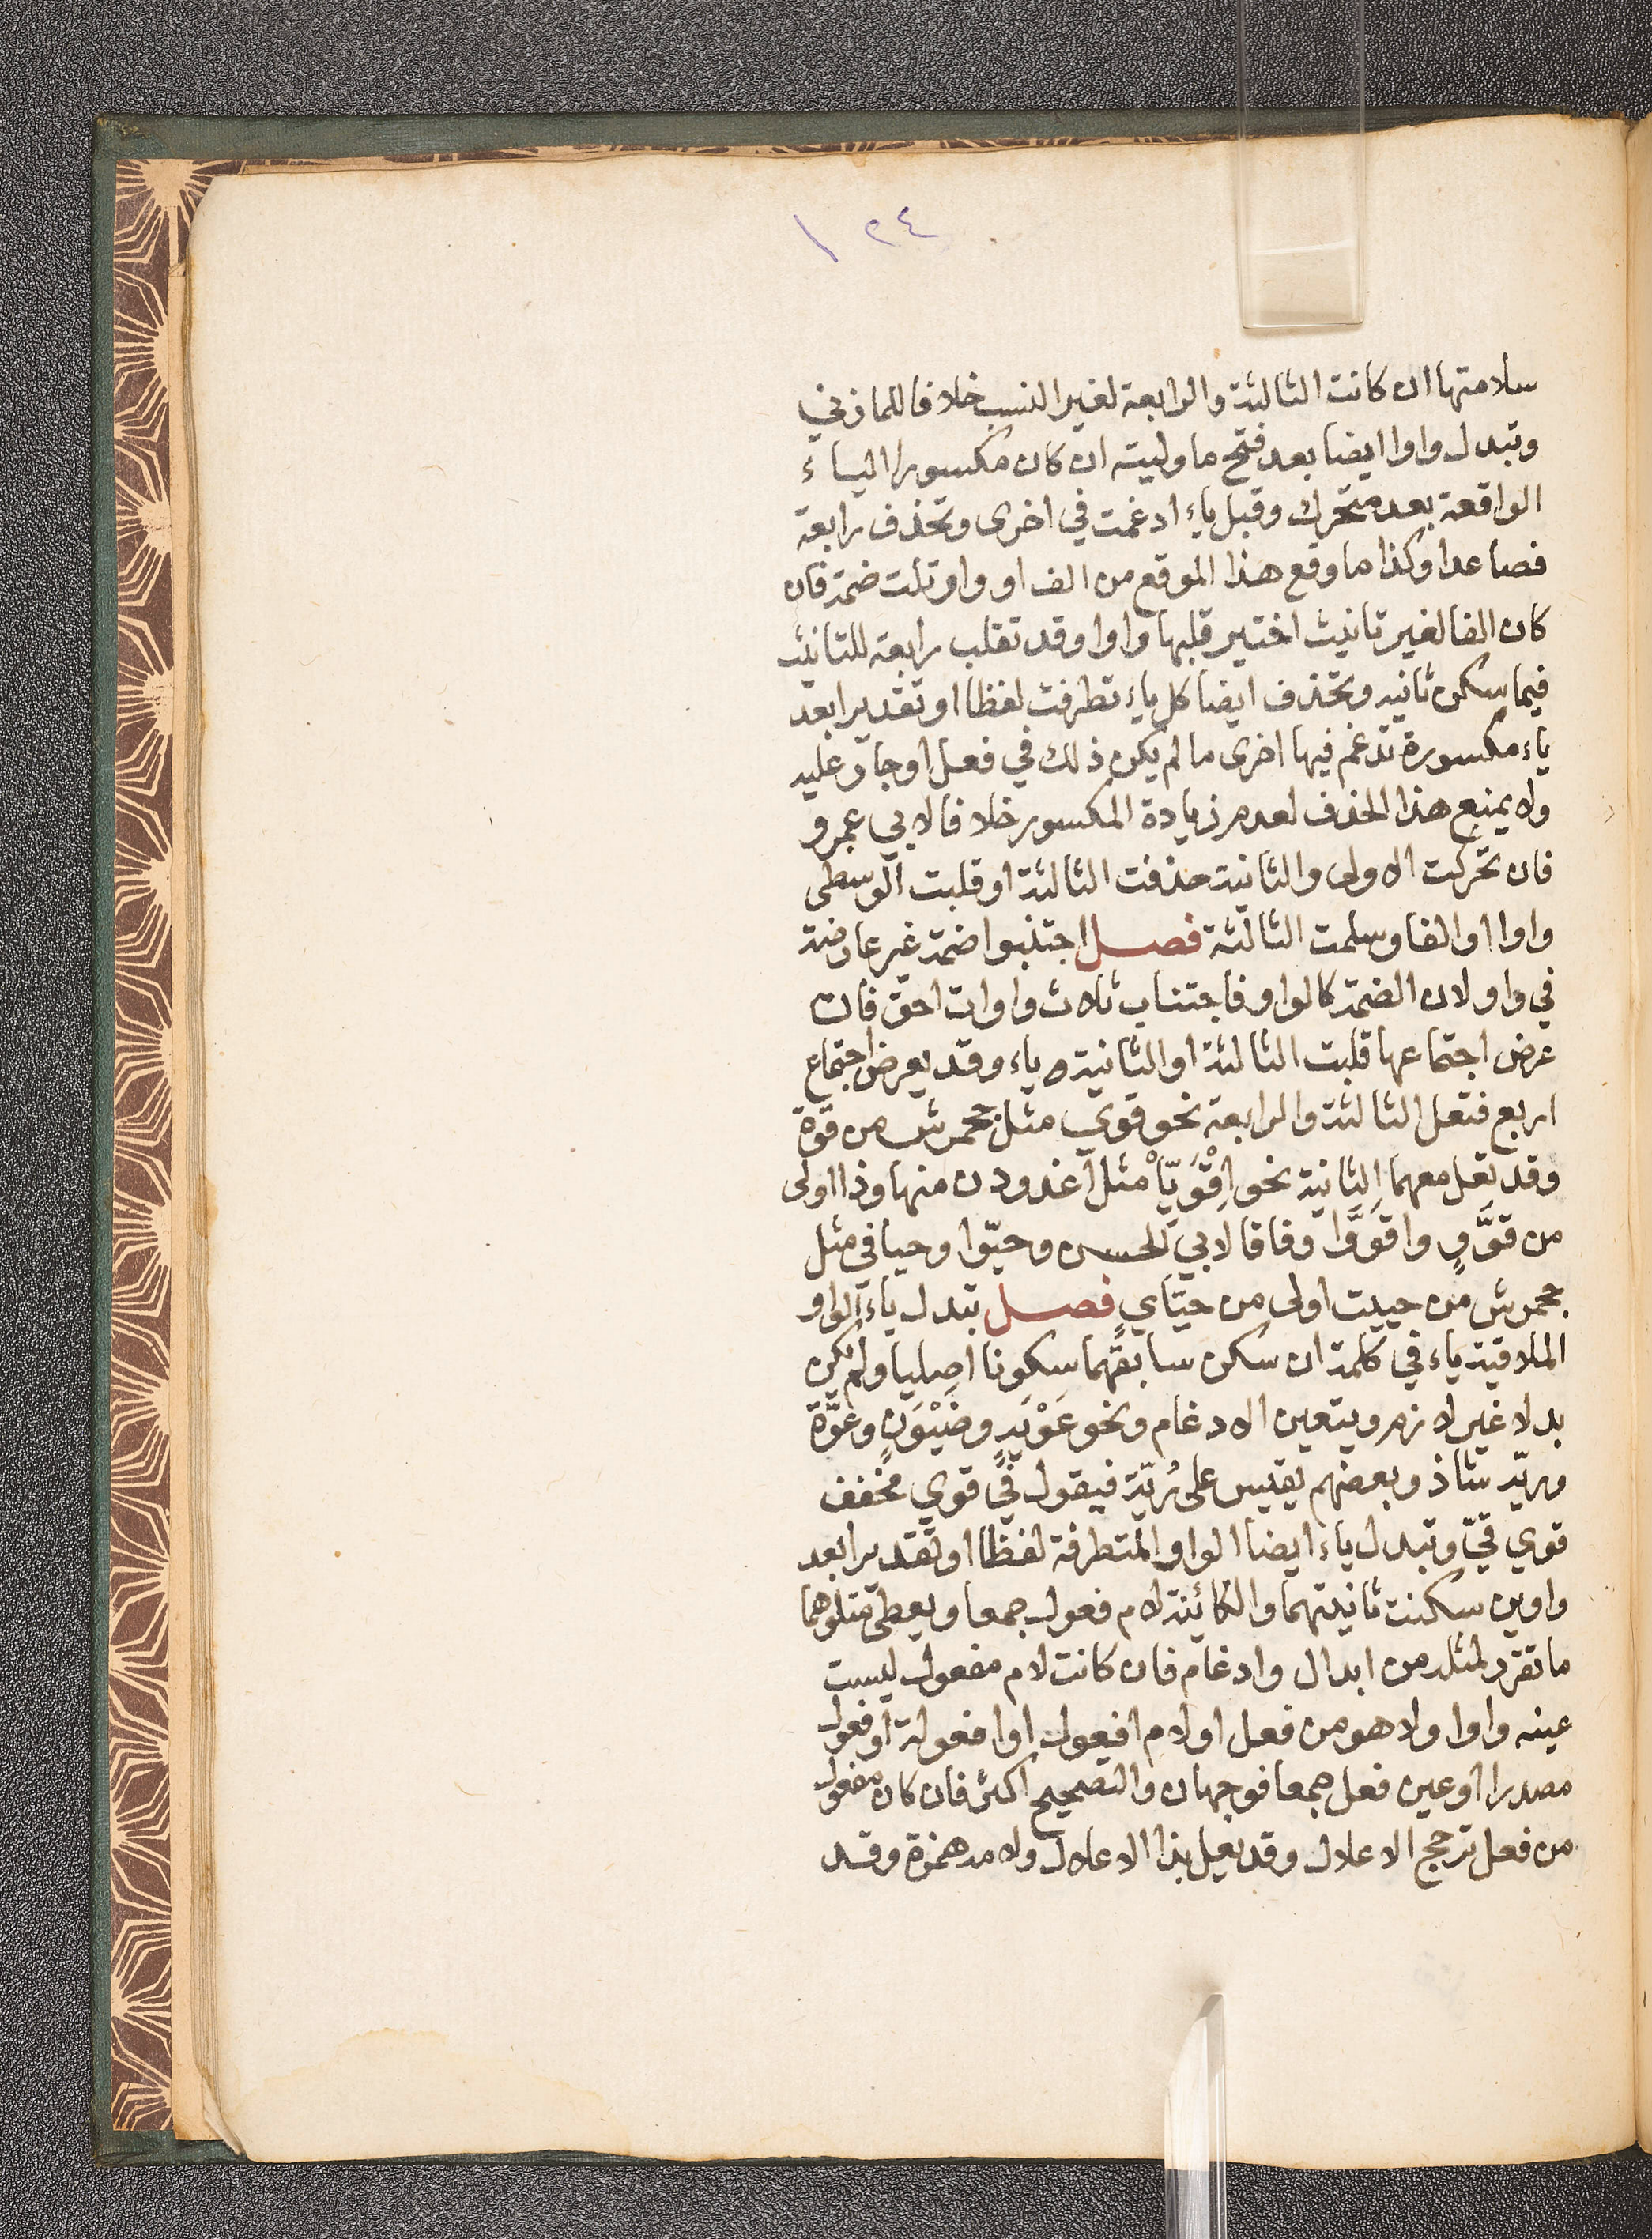 ١٢٤
سلامتها ان كانت الثالثة والرابعة لغير النسب خلافا للمازني
وتبدل واوا ايضا بعد فتح ما وليته ان كان مكسورا الياء
الواقعة بعد متحرك وقبل ياء ادغمت في اخرى وتحذف رابعة
فصاعدا وكذا ما وقع هذا الموقع من الف او واو تلت ضمة فان
كان الفا لغير تانيث اختير قلبها واوا وقد تقلب رابعة للتانيث
فيما سكن ثانيه وتحذف ايضا كل ياء تطرفت لفظا او تقديرا بعد
ياء مكسورة تدغم فيها اخرى ما لم يكن ذلك في فعل او جار عليه
ولا يمنع هذا الحذف لعدم زيادة المكسور خلافا لابي عمرو
فان تحركت الاولى والثانية حذفت الثالثة او قلبت الوسطى
واوا او الفا وسلمت الثالثة فصل اجتنبوا ضمة غير عارضة
في واو لان الضمة كالواو فاجتناب ثلاث واوات احق فان
عرض اجتماعها قلبت الثالثة او الثانية ه ياء وقد يعرض اجتماع
اربع فتعل الثالثة والرابعة نحو قوي مثل جحمرش من قوة
وقد تعل معهما الثانية نحو اِقْوَيَّاْ مثل اغدودن منها وذا اولى
من قَوَّوٍ واقوَوَّا وفاقا لابي الحسن وحيّوا وحيا في مثل
جحمرش من حييت اولى من حيَّايٍ فصل تبدل ياء الواو
الملاقية ياء في كلمة ان سكن سابقهما سكونا اصليا ولم يكن
بدلا غير لازم ويتعين الادغام ونحو عَوْيَةٍ وضَيْوَنٍ وعوَّة
وريّة شاذ وبعضهم يقيس على رُيّة فيقول في قوي مخفف
قوي قيّ وتبدل ياء ايضا الواو المتطرفة لفظا او تقديرا بعد
واوين سكنت ثانيتهما والكائنة لام فعول جمعا ويعطى متلوهما
ما تقرر لمثله من ابدال وادغام فان كانت لام مفعول ليست
عينه واوا ولا هو من فعل او لام افعول او افعولة او فعول
مصدرا او عين فعل جمعا فوجهان والتصحيح اكثر فان كان مفعول
من فعل ترجح الاعلال وقد يعل بذا الاعلال ولامه همزة وقد